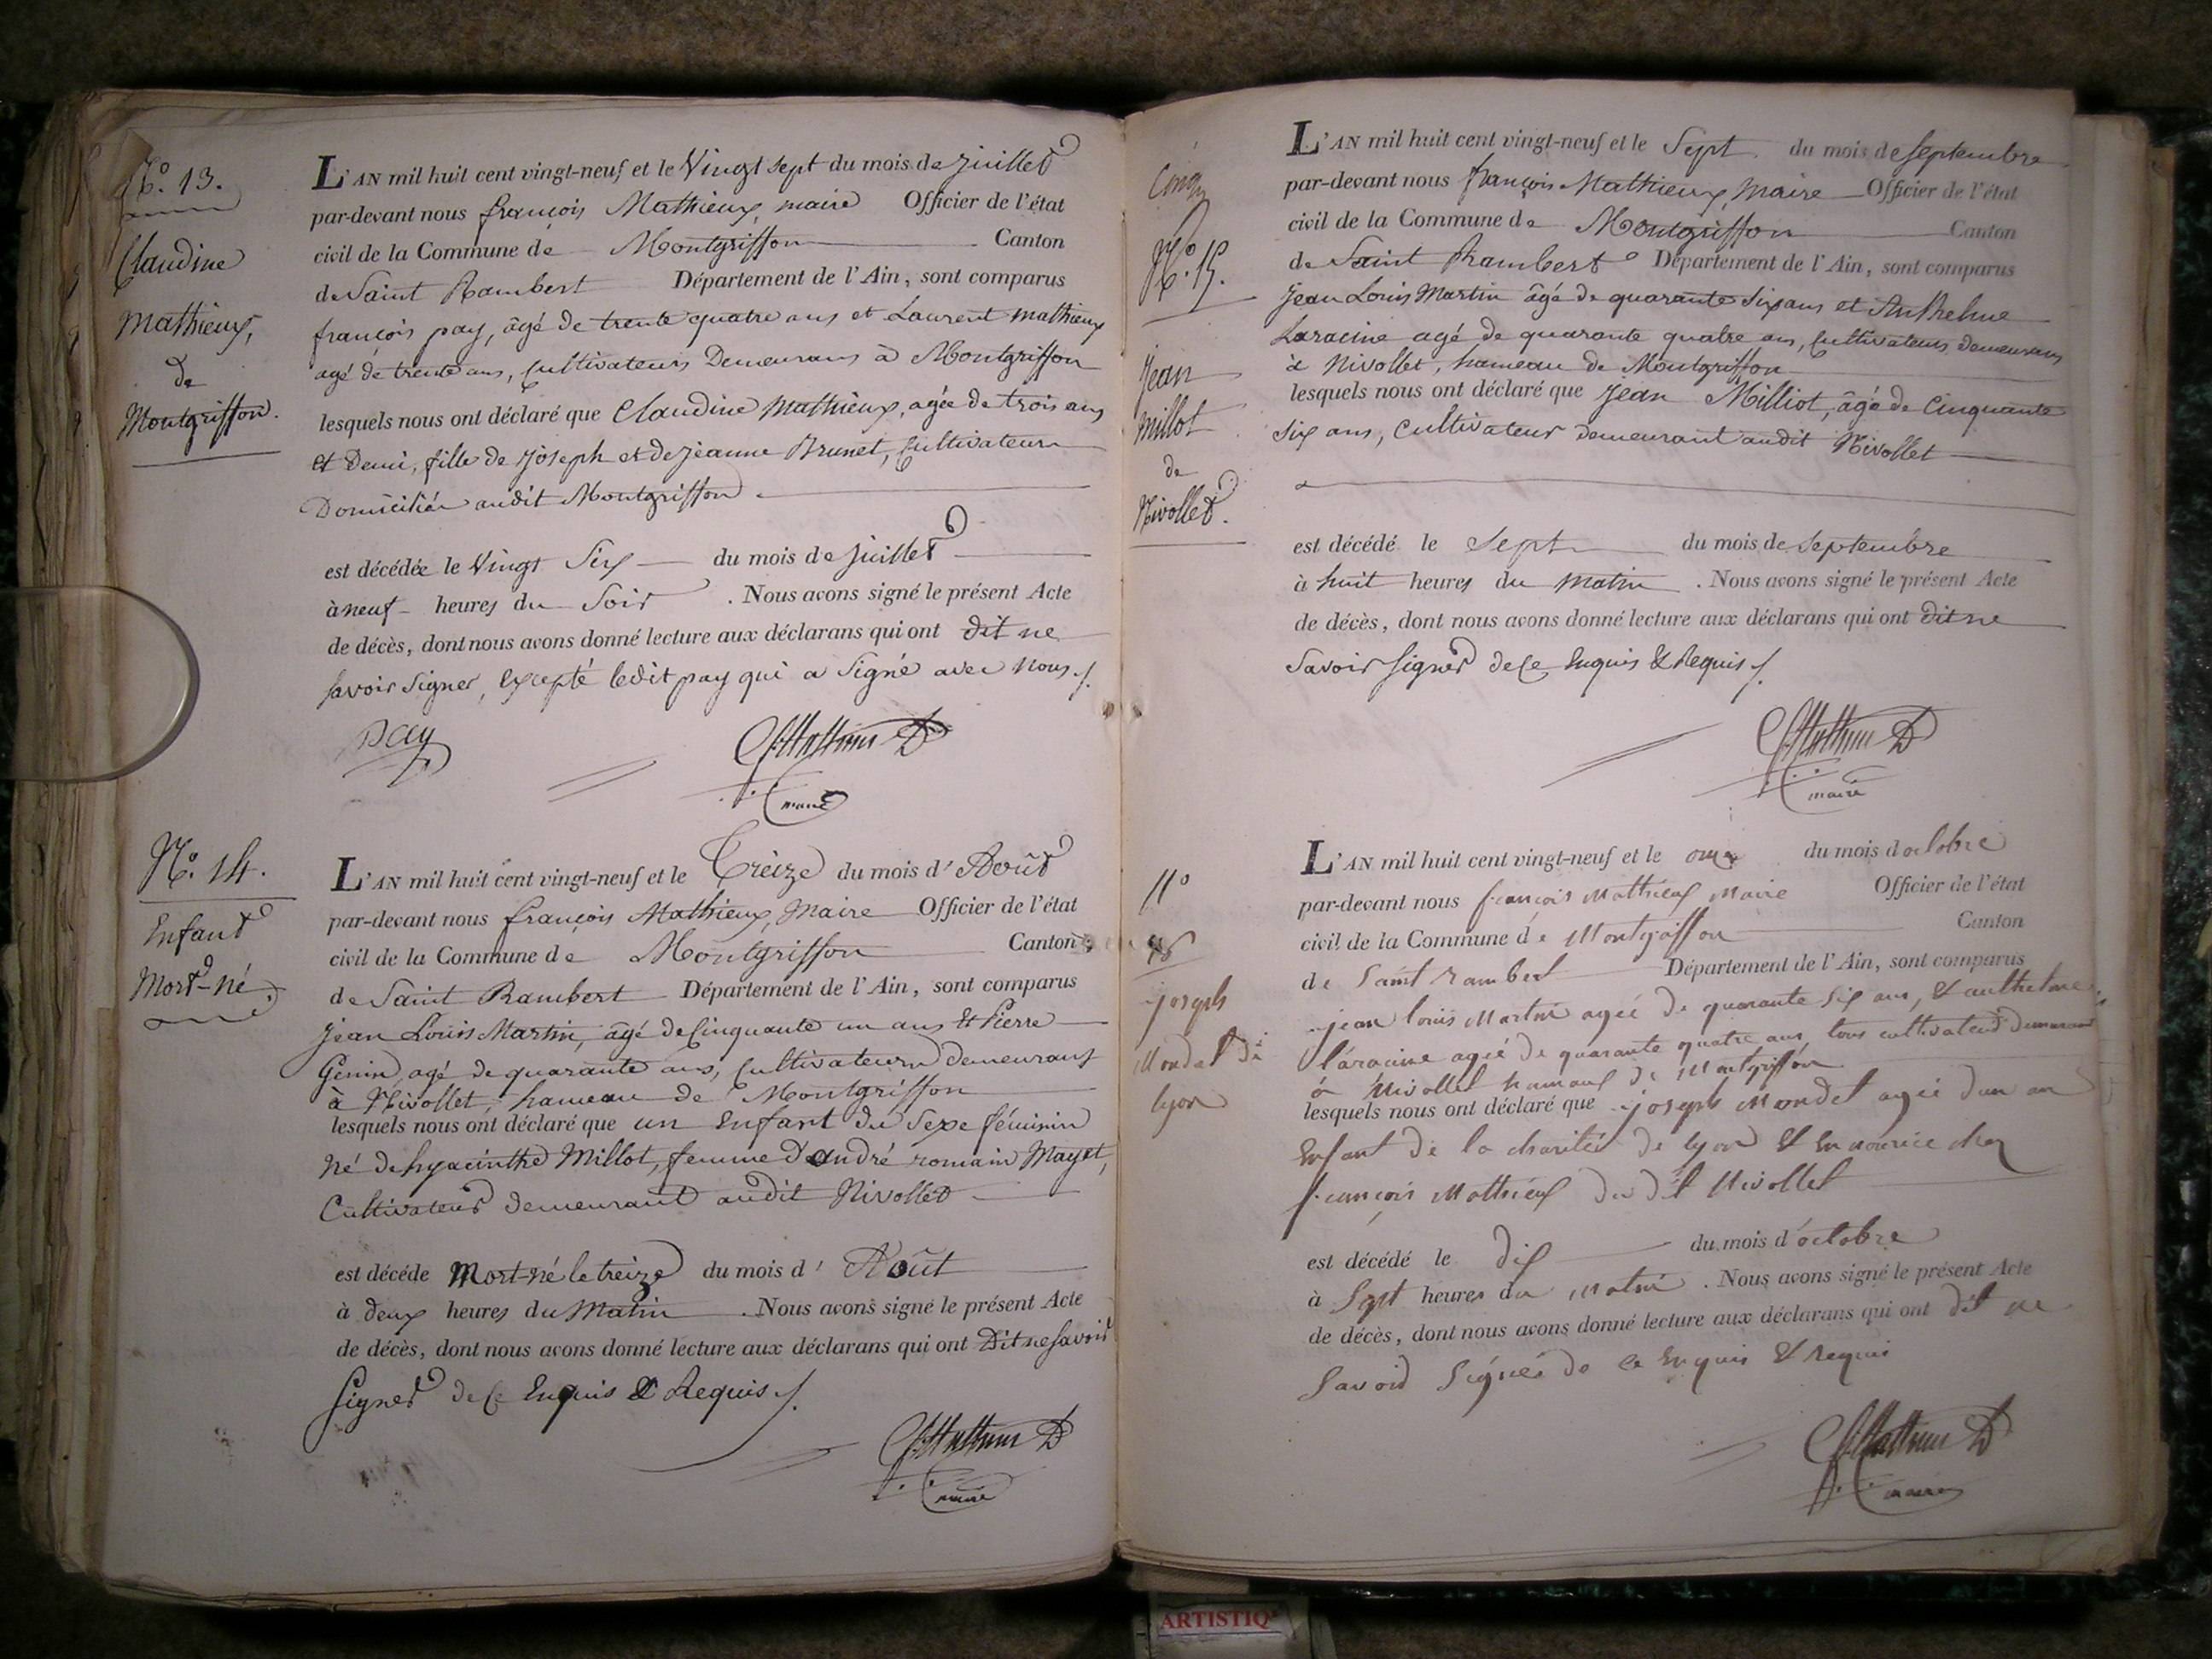 N.° 13.
Claudine
Mathieux,
de
Montgriffon.
L'AN mil huit cent vingt-neuf et le Vingt sept du mois de juillet
par-devant nous françois Mathieux, maire Officier de l'état
civil de la Commune de Montgriffon Canton
de Saint Rambert Département de l'Ain, sont comparus
françois pay, âgé de trente quatre ans et Laurent Mathieux
agé de trente ans, Cultivateurs Demeurans à Montgriffon
lesquels nous ont déclaré que Claudine Mathieux, agée de trois ans
et Demi, fille de joseph et de jeanne Brunet, Cultivateurs
Domiciliés audit Montgriffon
est décédée le Vingt Six du mois de juillet
à neuf heures du Soir . Nous avons signé le présent Acte
de décès, dont nous avons donné lecture aux déclarans qui ont dit ne
savoir signer, Excepté ledit pay qui a Signé avec nous ./.
pay
f. Mathieux
maire
N.° 14.
Enfant
Mort-né.
L'AN mil huit cent vingt-neuf et le Treize du mois d'Août
par-devant nous françois Mathieux, Maire Officier de l'état
civil de la Commune de Montgriffon Canton
de Saint Rambert Département de l'Ain, sont comparus
jean Louis Martin, âgé de Cinquante un ans et Pierre
Genin, agé de quarante ans, Cultivateurs demeurans
à Nivollet, hameau de Montgriffon
lesquels nous ont déclaré que un Enfant du Sexe féminin
né de hyacinthe Millot, femme d'andré romain Mayet,
Cultivateur demeurant audit Nivollet
est décéde Mort-né le treize du mois d' Août
à deux heures du Matin . Nous avons signé le présent Acte
de décès, dont nous avons donné lecture aux déclarans qui ont Dit ne Savoir
Signer de Ce Enquis & Requis ./.
f. Mathieux
maire
Cinq
N.° 15.
jean
Millot
de
Nivollet.
L'AN mil huit cent vingt-neuf et le Sept du mois de Septembre
par-devant nous françois Mathieux, Maire Officier de l'état
civil de la Commune de Montgriffon Canton
de Saint Rambert Département de l'Ain, sont comparus
jean Louis Martin âgé de quarante Six ans et Anthelme
Laracine agé de quarante quatre ans, Cultivateurs demeurans
à Nivollet, hameau de Montgriffon
lesquels nous ont déclaré que jean Milliot, âgé de Cinquante
Six ans, Cultivateur demeurant audit Nivollet
est décédé le Sept du mois de Septembre
à huit heures du Matin . Nous avons signé le présent Acte
de décès, dont nous avons donné lecture aux déclarans qui ont dit ne
Savoir Signer de Ce Enquis & Requis ./.
f. Mathieux
maire
N°
joseph
Mondet de
lyon
L'AN mil huit cent vingt-neuf et le onze du mois d octobre
par-devant nous françois Mathieux Maire Officier de l'état
civil de la Commune de Montgriffon Canton
de Saint rambert Département de l'Ain, sont comparus
jean louis Martin agée de quarante Six ans, & anthelme
l'aracine agée de quarante quatre ans, tous cultivateurs demeurans
à Nivollet hameaux de Montgriffon
lesquels nous ont déclaré que joseph Mondet agée dun an
Enfant de la charitée de lyon & En nourice chez
françois Mathieux du dit Nivollet
est décédé le dix du mois d'octobre
à Sept heures du Matin . Nous avons signé le présent Acte
de décès, dont nous avons donné lecture aux déclarans qui ont dit ne
Savoir Signer de ce Enquis & requis
f. Mathieux
maire
ARTISTIQ